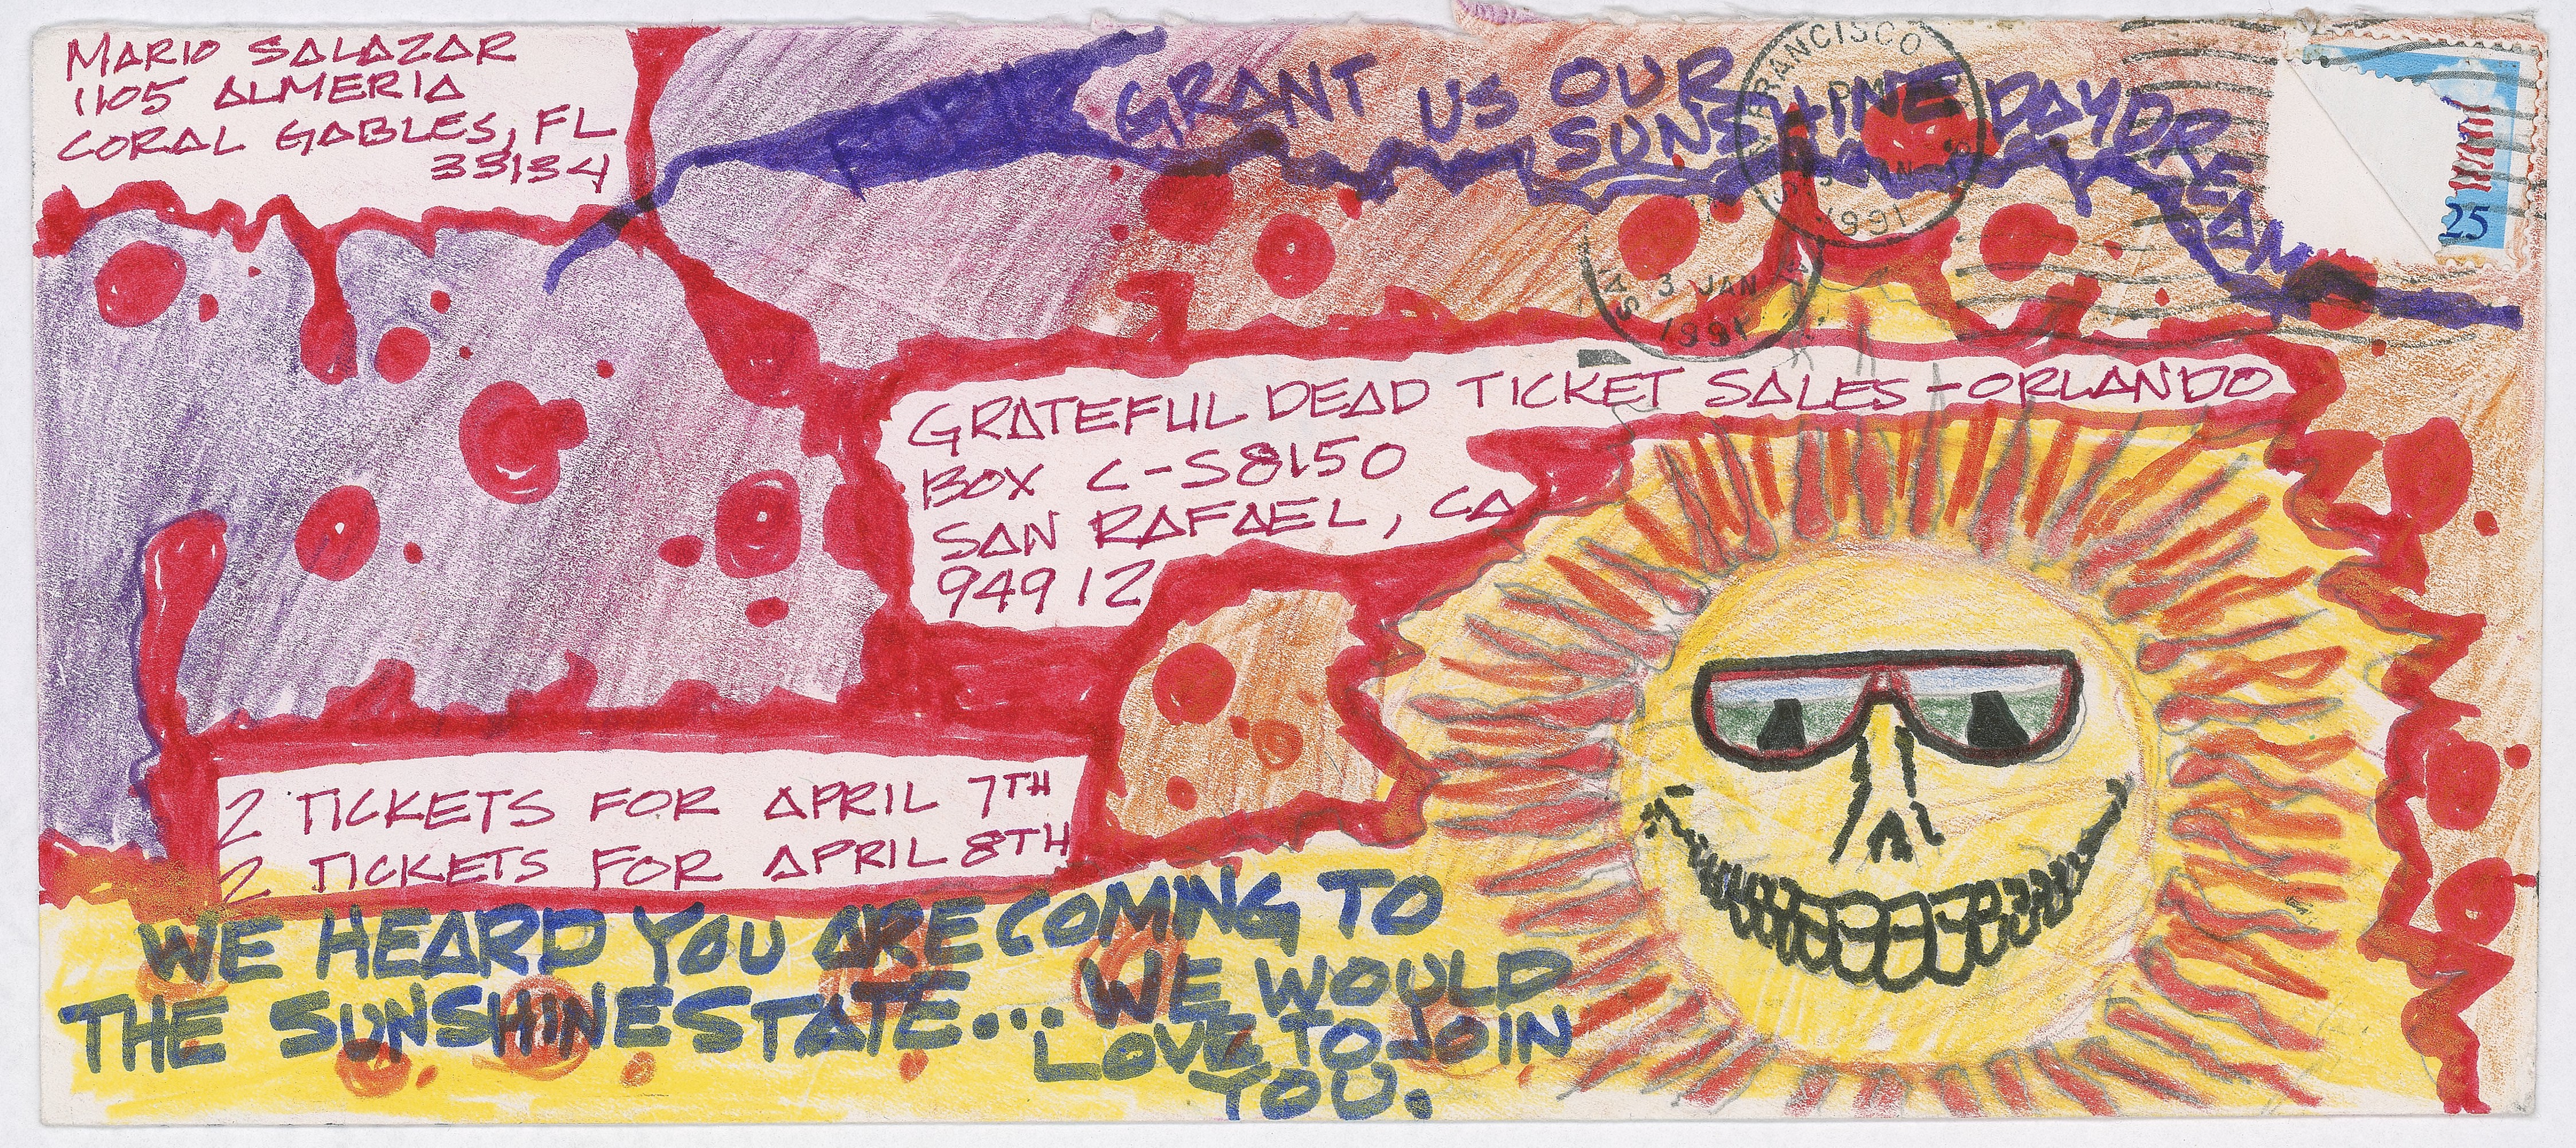 MARIO SALAZAR
1105 ALMERIA
CORAL GABLES, FL
33134
GRANT US OUR
SUNSHINE DAYDREAM
FRANCISCO
PM
3 JAN
1991
3 JAN
1991
25
GRATEFUL DEAD TICKET SALES-ORLANDO
BOX C-S8150
SAN RAFAEL, CA
94912
2 TICKETS FOR APRIL 7TH
2 TICKETS FOR APRIL 8TH
WE HEARD YOU ARE COMING TO
THE SUNSHINE STATE... WE WOULD
LOVE TO JOIN
YOU.